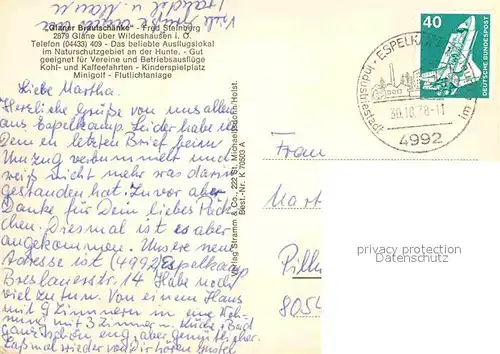 "Glaner Brautschänke" - Fred Steinberg
2879 Glane über Wildeshausen i. O.
Telefon (04433) 409 - Das beliebte Ausflugslokal
im Naturschutzgebiet an der Hunte. - Gut
geeignet für Vereine und Betriebsausflüge
Kohl- und Kaffeefahrten - Kinderspielplatz
Minigolf - Flutlichtanlage
Liebe Martha.
Herzliche Grüße von uns allen
aus Espelkamp. Leider habe ich
Dein en letzten Brief beim
Umzug verbummelt und
weiß nicht mehr was darin
gestanden hat. Zuvor aber
Danke für Dein liebes Päck-
chen. Diesmal ist es aber
angekommen. Unsere neue
Adresse ist (4992) Espelkamp
Breslauerstr. 14 Habe noch
viel zu tun. Von einem Haus
mit 9 Zimmern in eine Woh-
nung mit 3 Zimmer u. Küche, Bad
ganz schön eng, aber gemütlicher.
Laß mal wieder von Dir hören
Viele
Verlag Stramm & Co., 222 St. Michaelisdonn/Holst.
Best.-Nr. K 70503 A
40
DEUTSCHE BUNDESPOST
ESPELKAMP
Industriestadt im
30.10.78-11
4992
Frau
Mart
Pill
805
privacy protection
(VDM)